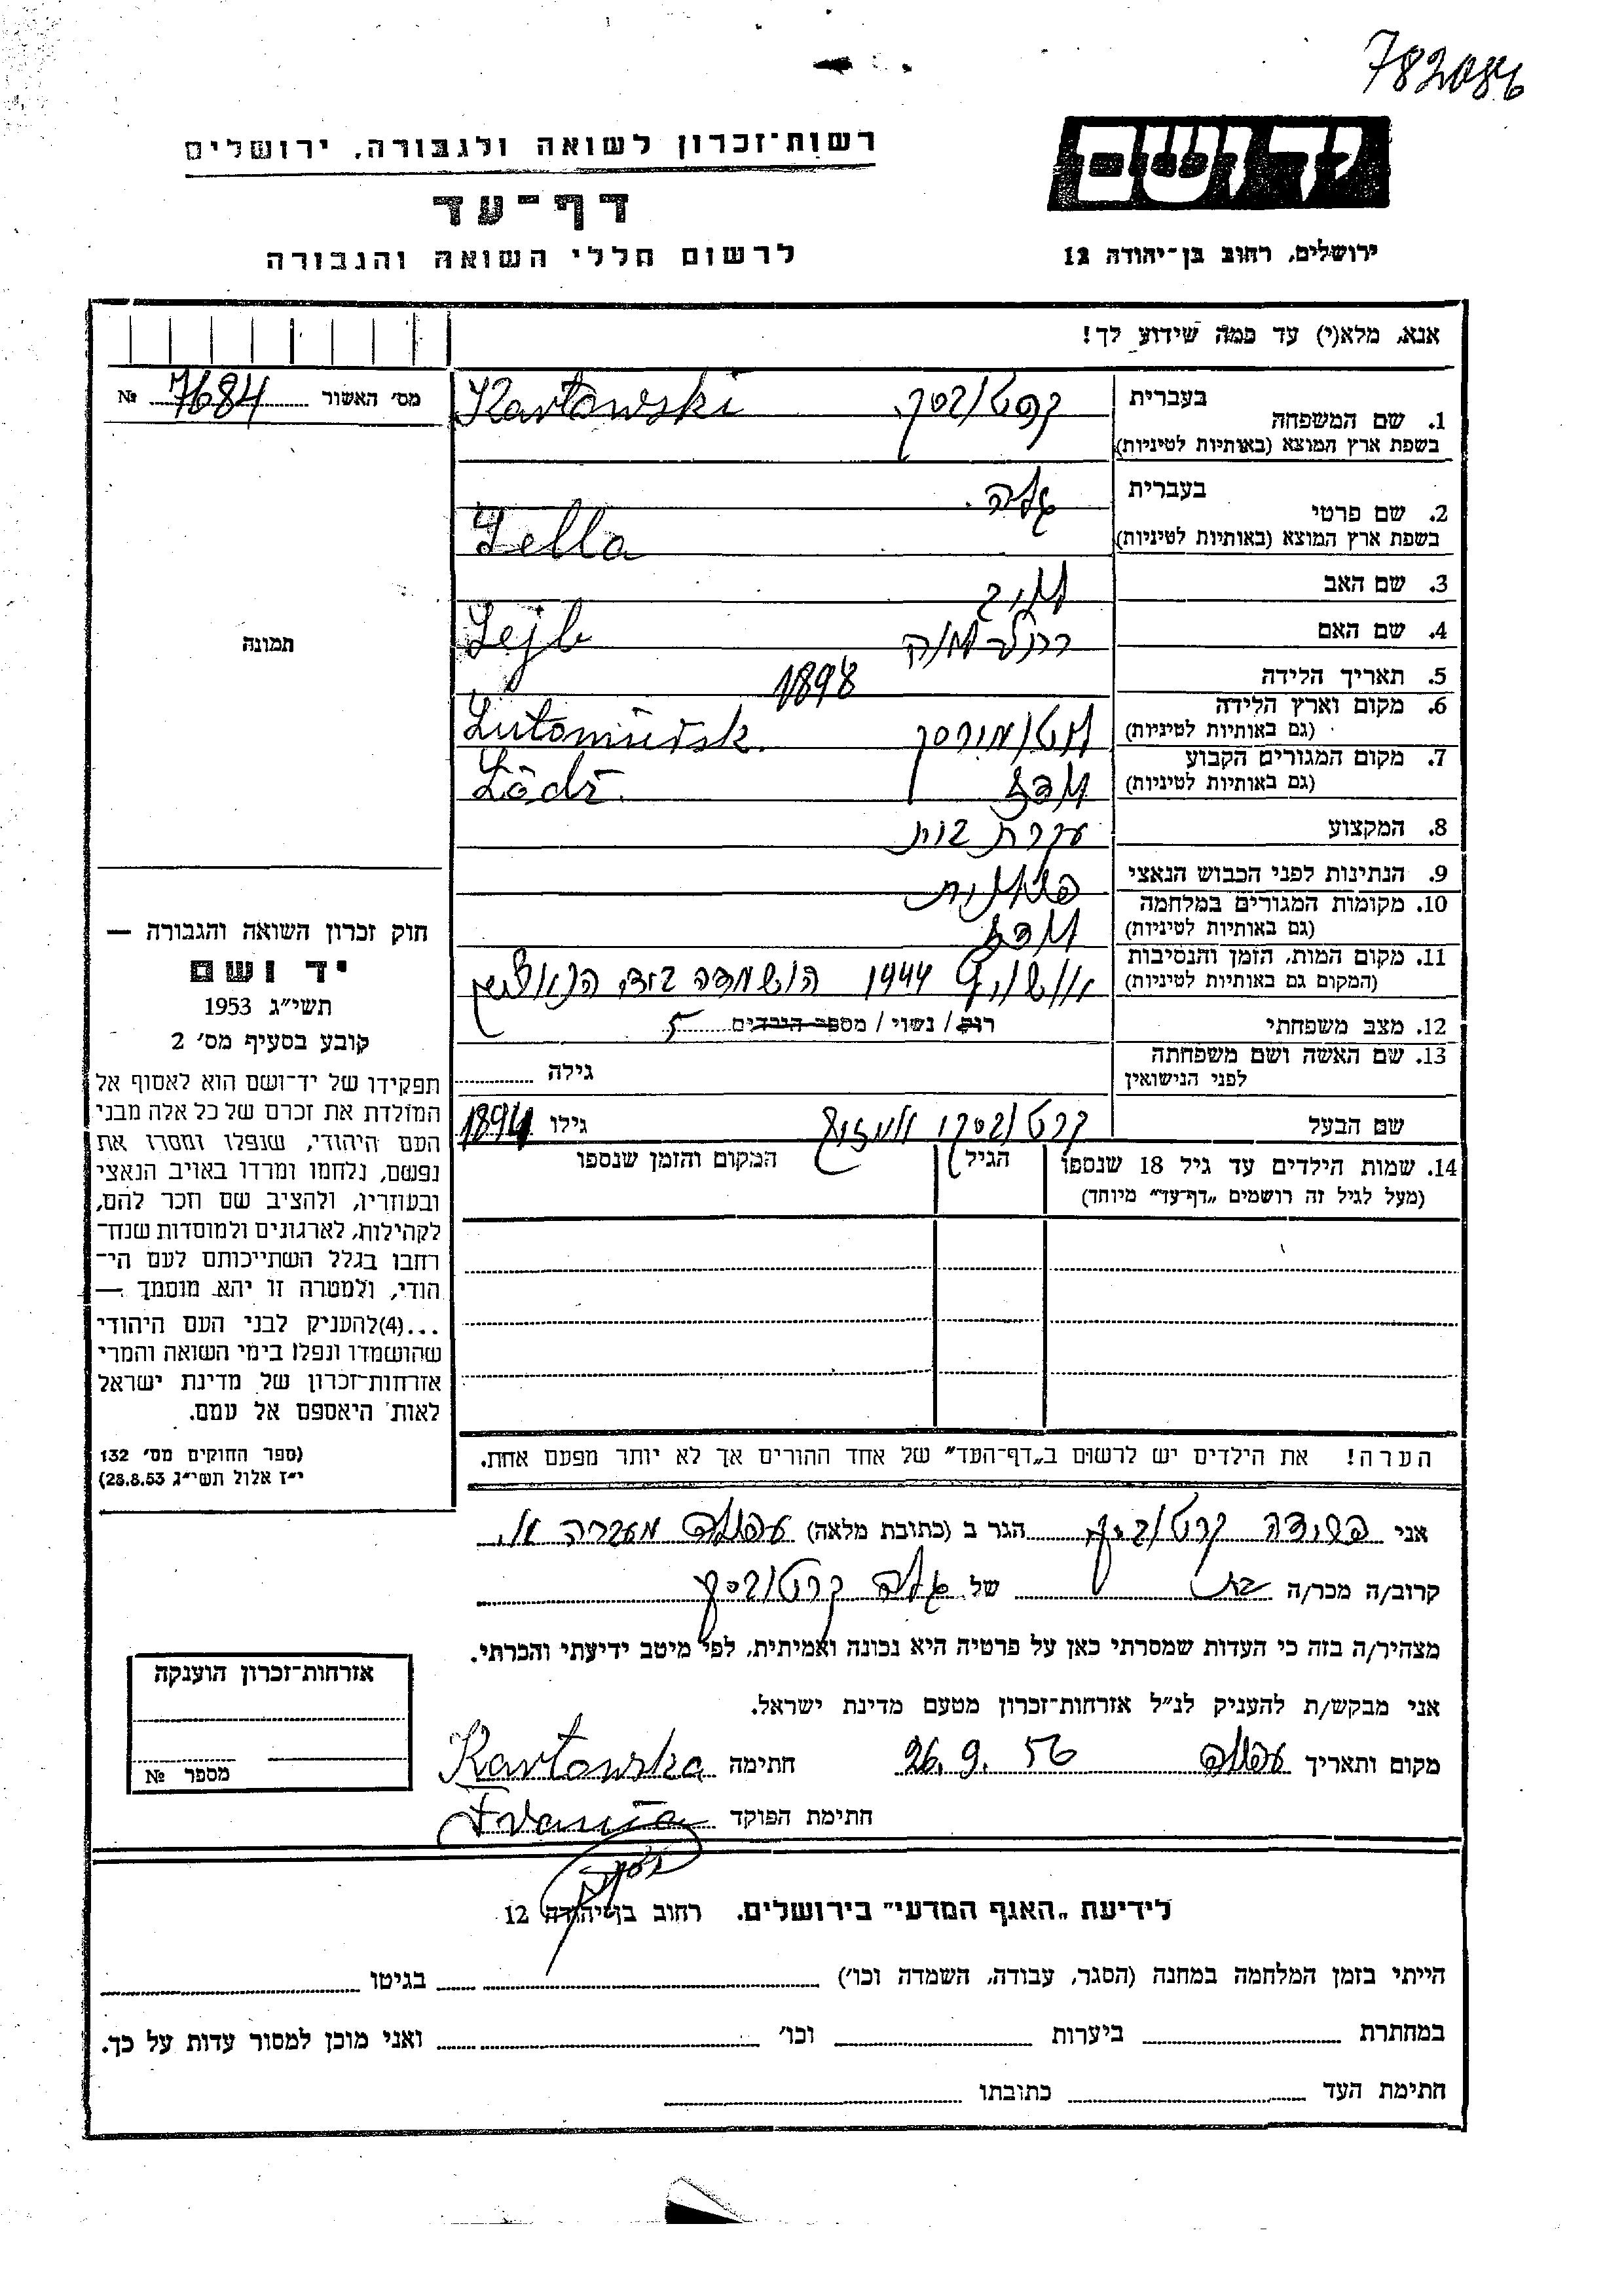 782086
רשות־זכרון לשואה ולגבורה, ירושלים
יד ושם
דף־עד
לרשום חללי השואה והגבורה
ירושלים, רחוב בן־יהודה 12
אנא, מלא(י) עד כמה שידוע לך!
מס׳ האשור № 7684
תמונה
1. שם המשפחה בעברית
בשפת ארץ המוצא (באותיות לטיניות)
קרטובסקי Kartowski
2. שם פרטי בעברית
בשפת ארץ המוצא (באותיות לטיניות)
Zella
3. שם האב
לייב Lejb
4. שם האם
5. תאריך הלידה 1898
6. מקום וארץ הלידה
(גם באותיות לטיניות)
לוטומירסק Lutomiersk
7. מקום המגורים הקבוע
(גם באותיות לטיניות)
לודז Lódź
8. המקצוע עקרת בית
9. הנתינות לפני הכבוש הנאצי פולנית
10. מקומות המגורים במלחמה
(גם באותיות לטיניות)
לודז
11. מקום המות, הזמן והנסיבות
(המקום גם באותיות לטיניות)
אושויץ 1944 הושמדה בידי הנאצים
12. מצב משפחתי רוק / נשוי / מספר הילדים 5
13. שם האשה ושם משפחתה
לפני הנישואין
גילה
שם הבעל קרטובסקי גילו 1894
14. שמות הילדים עד גיל 18 שנספו הגיל המקום והזמן שנספו
(מעל לגיל זה רושמים „דף־עד״ מיוחד)
הערה! את הילדים יש לרשום ב„דף־העד״ של אחד ההורים אך לא יותר מפעם אחת.
חוק זכרון השואה והגבורה —
יד ושם
תשי״ג 1953
קובע בסעיף מס׳ 2
תפקידו של יד־ושם הוא לאסוף אל
המולדת את זכרם של כל אלה מבני
העם היהודי, שנפלו ומסרו את
נפשם, נלחמו ומרדו באויב הנאצי
ובעוזריו, ולהציב שם וזכר להם,
לקהילות, לארגונים ולמוסדות שנח־
רבו בגלל השתייכותם לעם הי־
הודי, ולמטרה זו יהא מוסמך —
...(4)להעניק לבני העם היהודי
שהושמדו ונפלו בימי השואה והמרי
אזרחות־זכרון של מדינת ישראל
לאות היאספם אל עמם.
(ספר החוקים מס׳ 132
י״ז אלול תשי״ג 28.8.53)
אני פרידה קרטובסקי הגר ב (כתובת מלאה) עפולה מעברה
קרוב/ה מכר/ה בת של קרטובסקי
מצהיר/ה בזה כי העדות שמסרתי כאן על פרטיה היא נכונה ואמיתית, לפי מיטב ידיעתי והכרתי.
אני מבקש/ת להעניק לנ״ל אזרחות־זכרון מטעם מדינת ישראל.
מקום ותאריך עפולה 26.9.56 חתימה Kartowska
חתימת הפוקד
אזרחות־זכרון הוענקה
מספר №
לידיעת „האגף המדעי״ בירושלים, רחוב בן־יהודה 12
הייתי בזמן המלחמה במחנה (הסגר, עבודה, השמדה וכו׳) בגיטו
במחתרת ביערות וכו׳ ואני מוכן למסור עדות על כך.
חתימת העד כתובתו